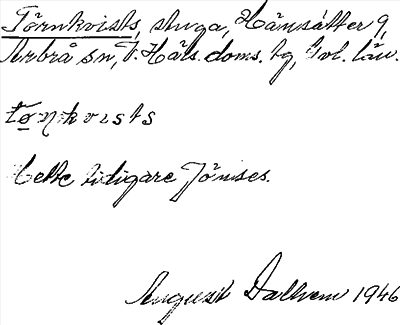 Törnkvists, stuga, Hämsätter 9,
Arbrå sn, V. Häls. doms. tg, Gvl. län.
tø̱ṇkvists
Hette tidigare Jönses.
August Dalhem 1946